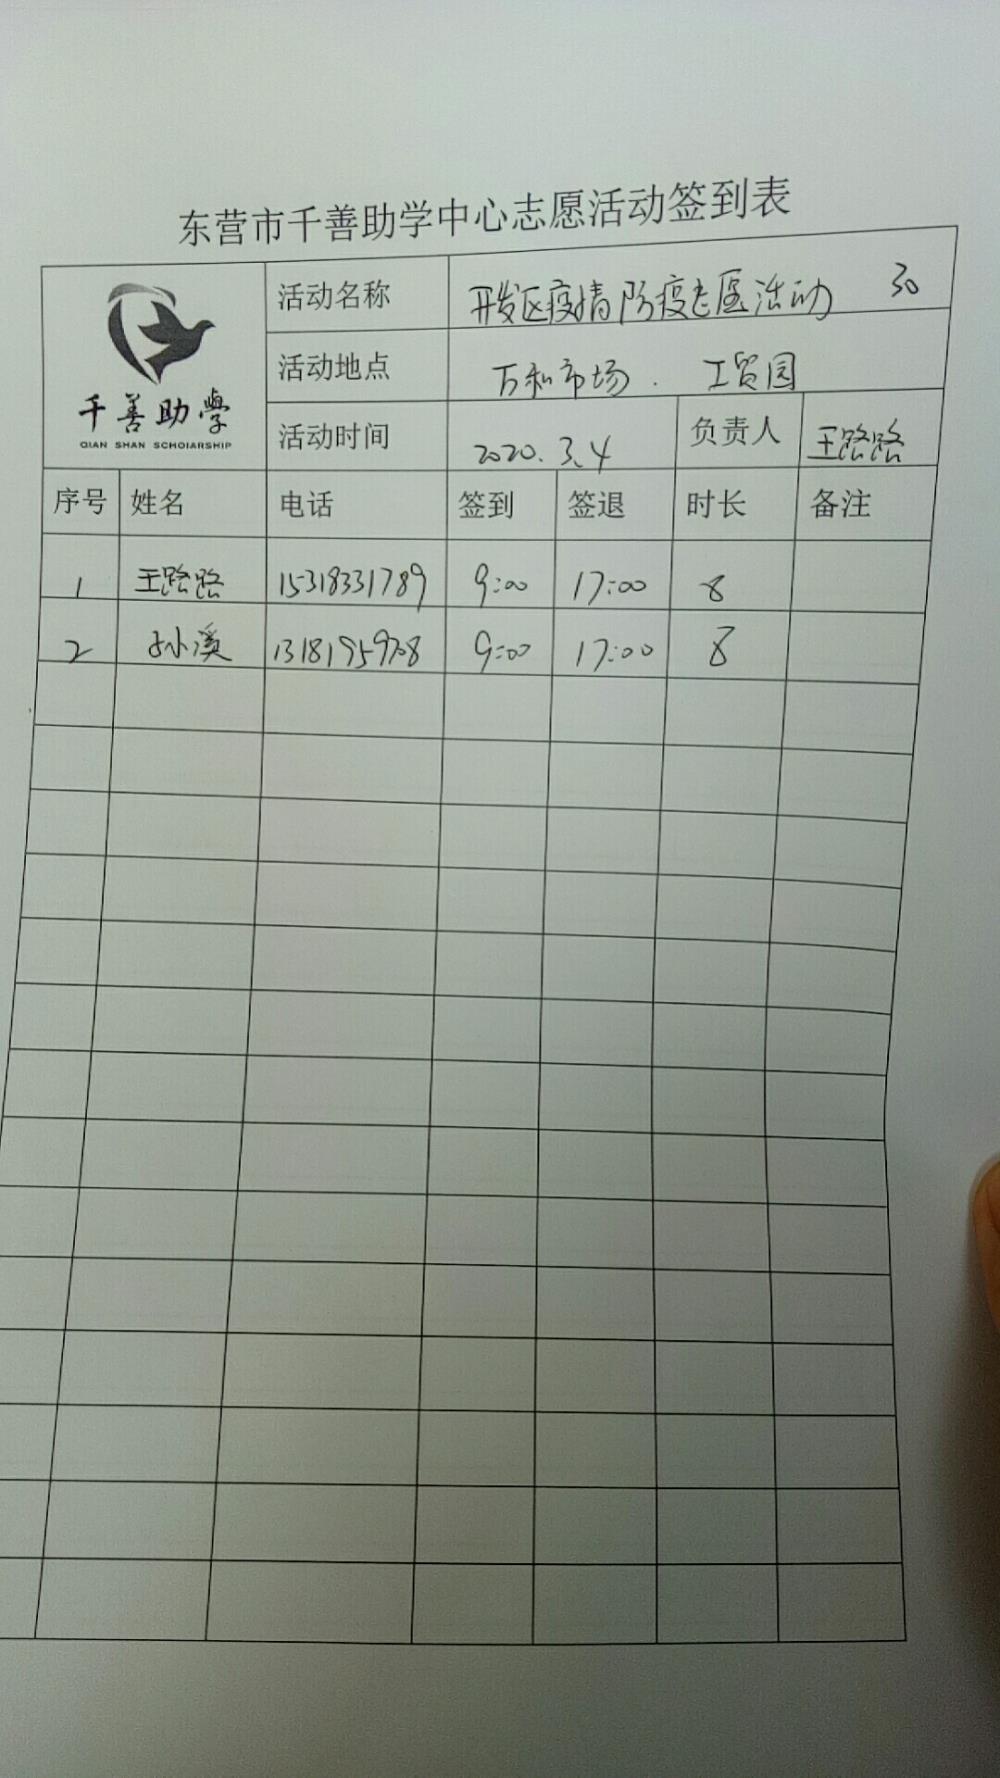 东营市千善助学中心志愿活动签到表
千善助学
QIAN SHAN SCHOIARSHIP
活动名称 开发区疫情防疫志愿活动 30
活动地点 万和市场. 工贸园
活动时间 2020.3.4 负责人 王路路
序号 姓名 电话 签到 签退 时长 备注
1 王路路 15318331789 9:00 17:00 8
2 小溪 9:00 17:00 8